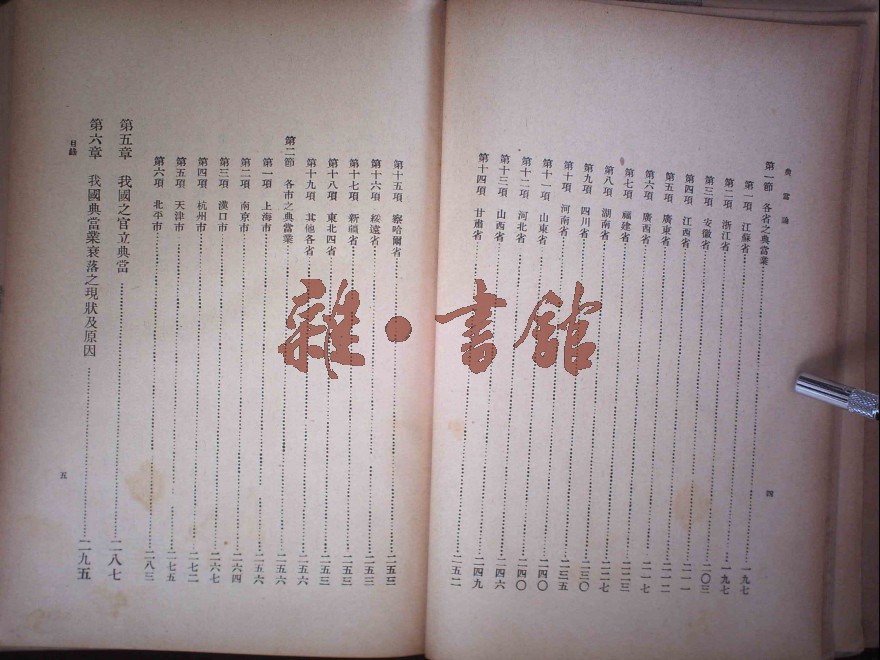 典當論
第一節 各省之典當業……一九七
第一項 江蘇省……一九七
第二項 浙江省……二〇三
第三項 安徽省……二一一
第四項 江西省……二一二
第五項 廣東省……二一七
第六項 廣西省……二二三
第七項 福建省……二二七
第八項 湖南省……二三〇
第九項 四川省……二三五
第十項 河南省……二四〇
第十一項 山東省……二四〇
第十二項 河北省……二四六
第十三項 山西省……二四九
第十四項 甘肅省……二五二
四
第十五項 察哈爾省……二五三
第十六項 綏遠省……二五三
第十七項 新疆省……二五三
第十八項 東北四省……二五三
第十九項 其他各省……二五六
第二節 各市之典當業……二五六
第一項 上海市……二五六
第二項 南京市……二六四
第三項 漢口市……二六七
第四項 杭州市……二七二
第五項 天津市……二七五
第六項 北平市……二八三
第五章 我國之官立典當……二八七
第六章 我國典當業衰落之現狀及原因……二九五
目錄
五
雜·書館